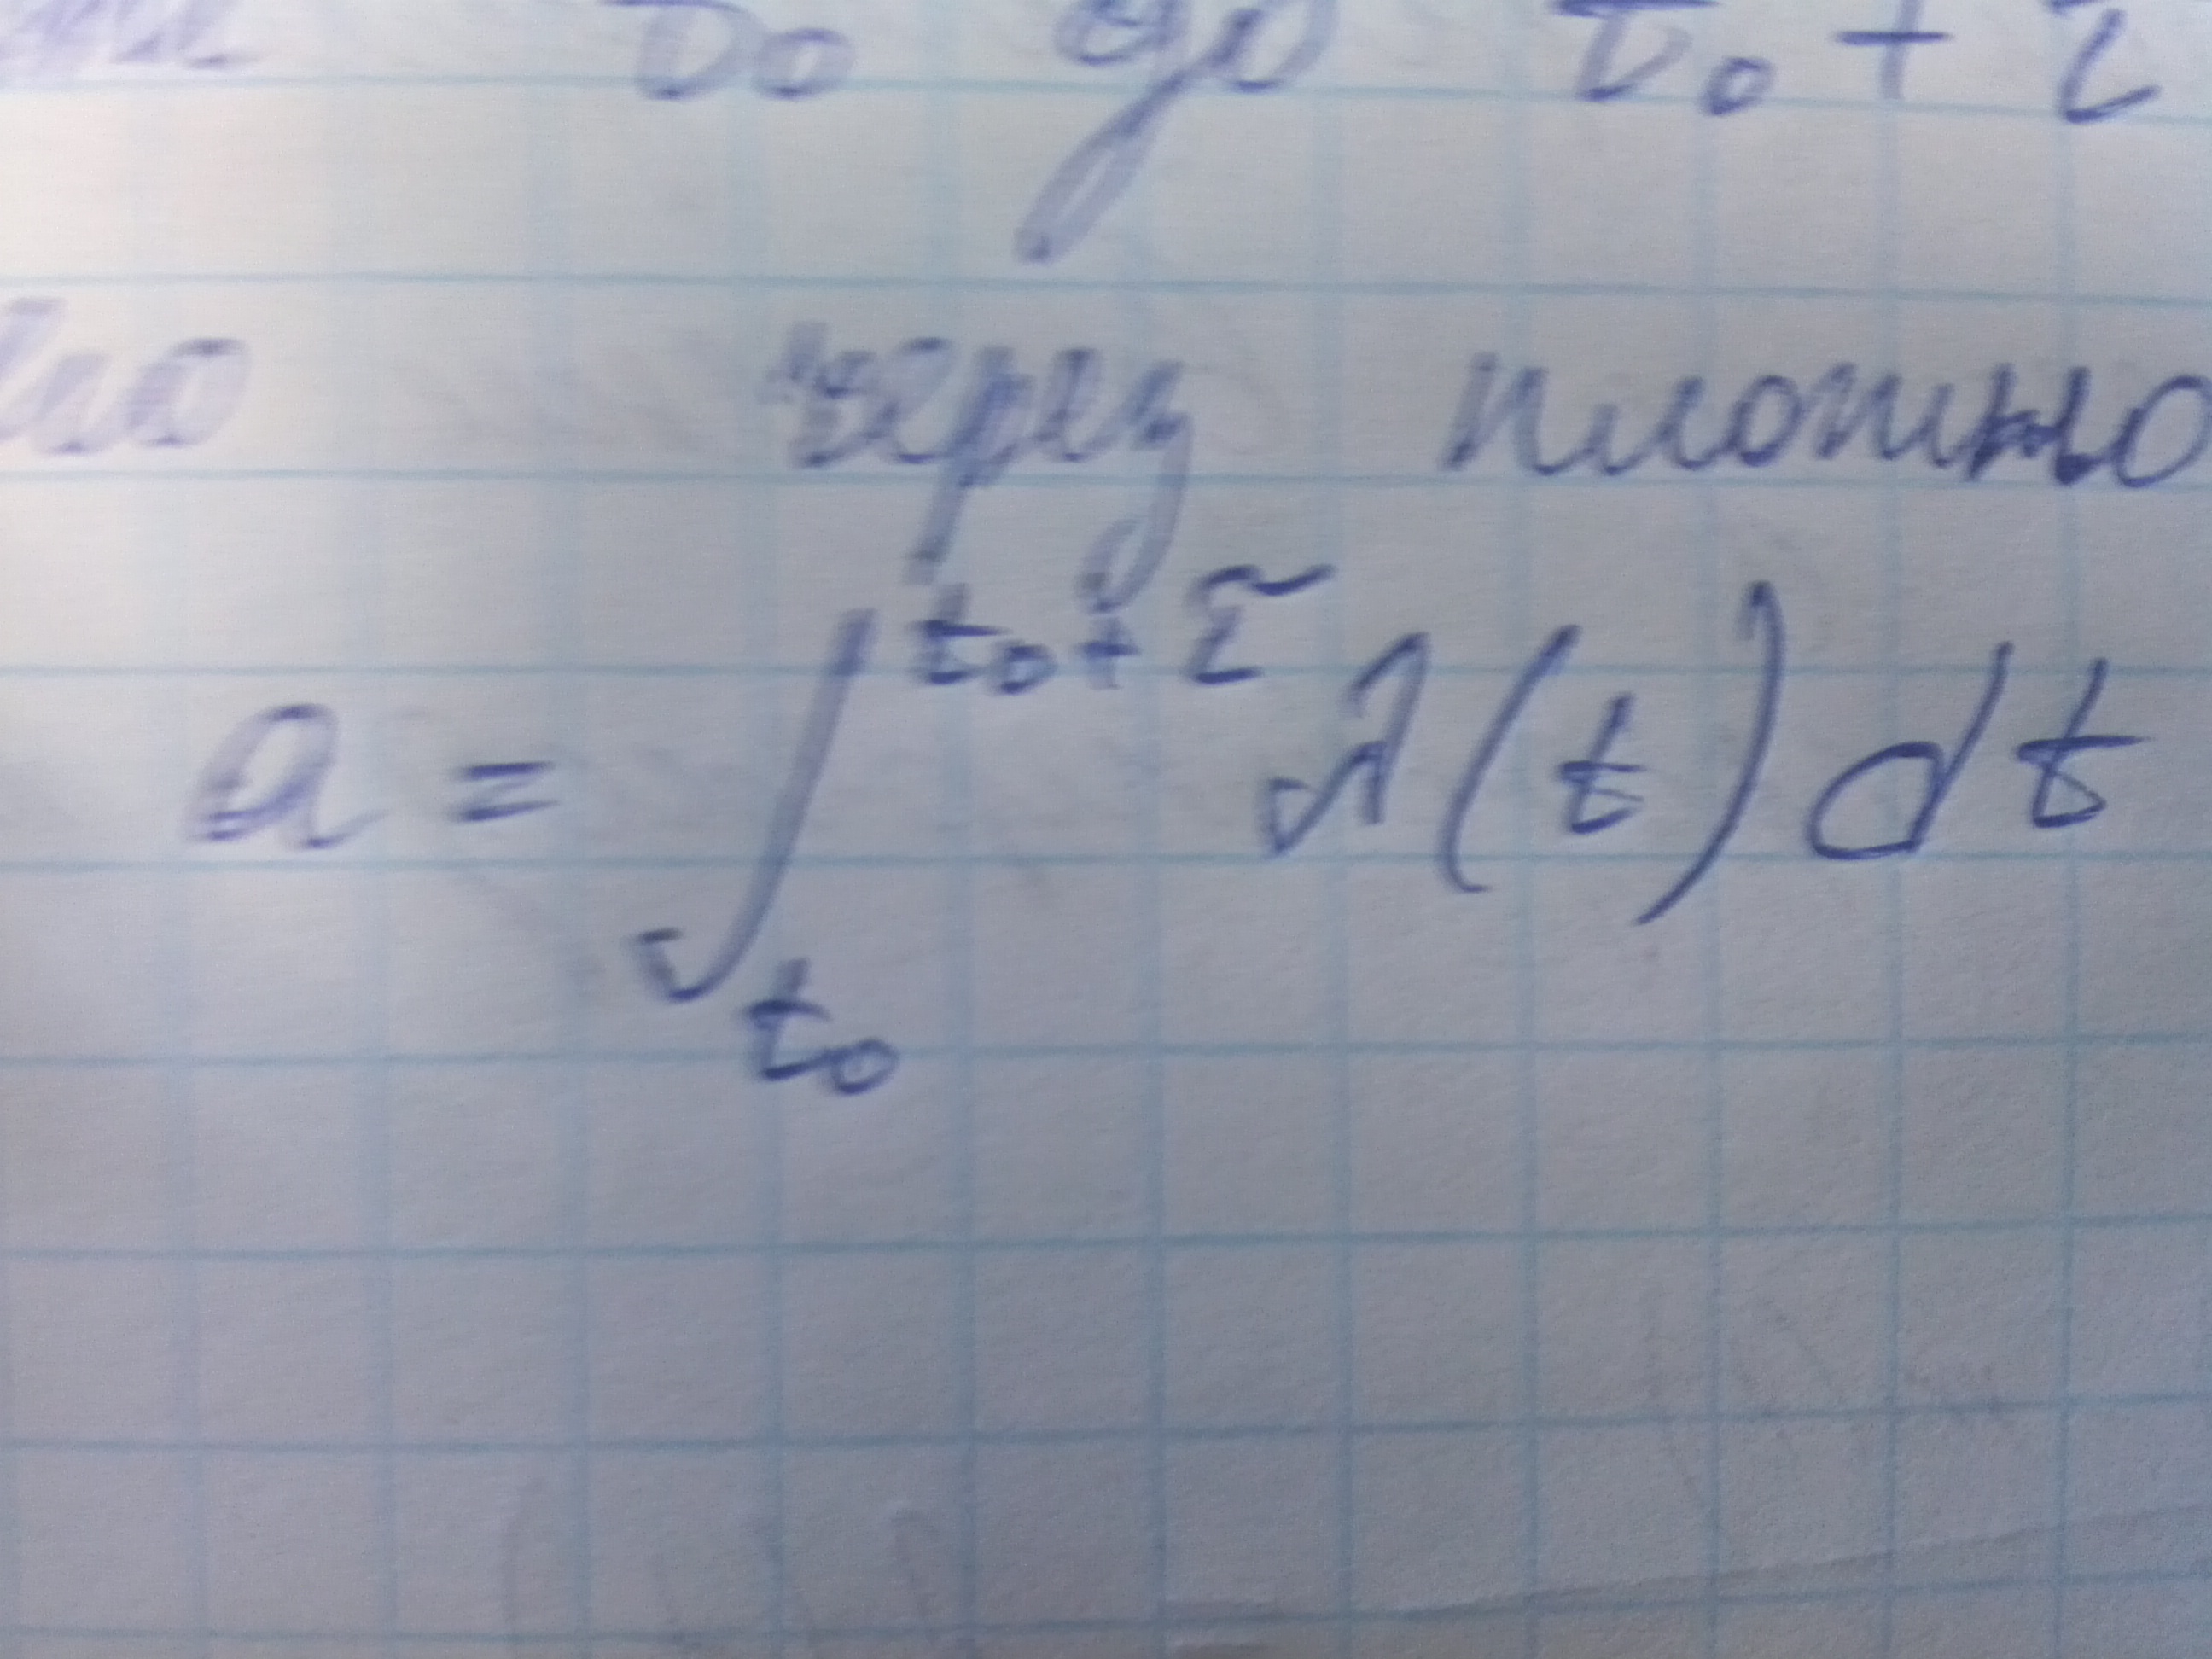 t₀ до t₀ + τ
через плотно
a = ∫_{t₀}^{t₀+τ} λ(t)dt